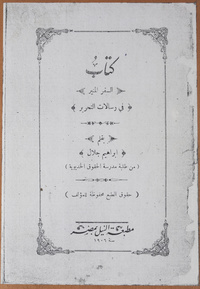 كتاب
السفر المنير
في رسالات التحرير
بقلم
ابراهيم جلال
( من طلبة مدرسة الحقوق الخديوية )
( حقوق الطبع محفوظة للمؤلف )
مطبعة النيل بمصر
سنة ١٩٠٦